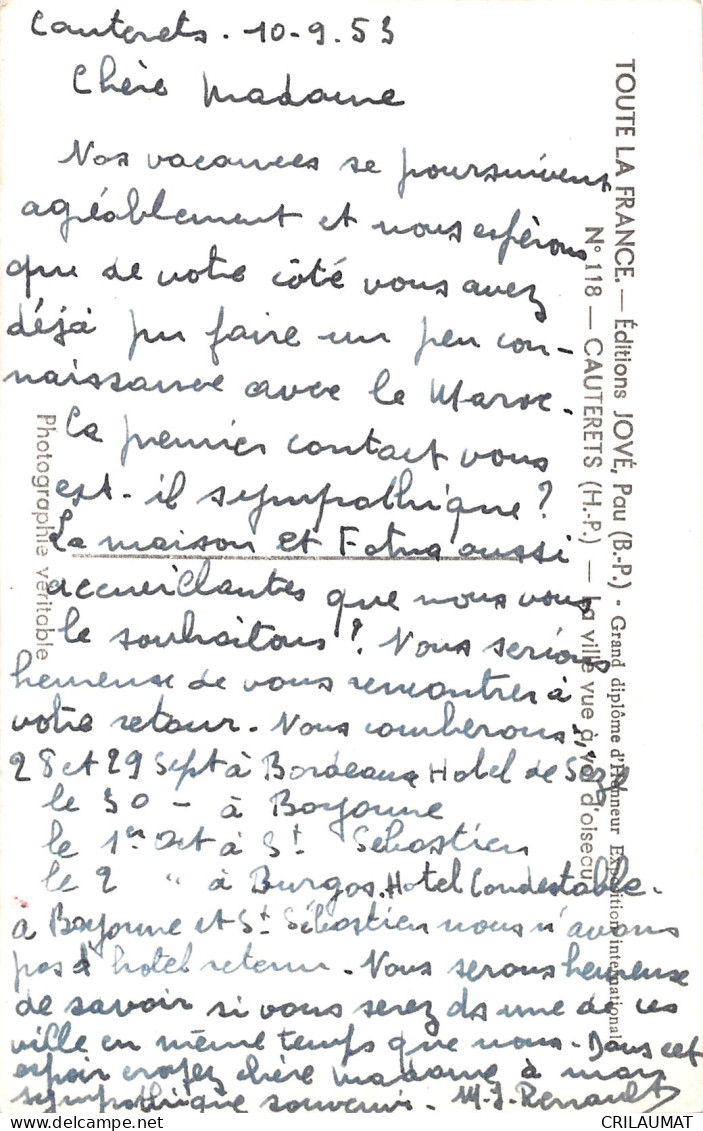 Cauterets. 10-9.53
Chère Madame
Nos vacances se poursuivent
agréablement et nous espérons
que de votre côté vous avez
déjà pu faire un peu con-
naissance avec le Maroc.
Ce premier contact vous
est-il sympathique?
La maison et Fatma aussi
accueillantes que nous vous
le souhaitons? Nous serions
heureuse de vous rencontrer à
votre retour. Nous
28 et 29 Sept à Bordeaux Hotel de Sèze
le 30 - à Bayonne
le 1er Oct à St Sébastien
le 2 " à Burgos. Hotel Condestable.
a Bayonne et St Sébastien nous n'avons
pas d'hotel retenu. Nous serons heureuse
de savoir si vous serez ds une de ces
ville en même temps que nous. Dans cet
espoir croyez chère madame à mon
sympathique souvenir. M-J. Renault
TOUTE LA FRANCE. — Éditions JOVÉ, Pau (B.-P.) - Grand diplôme d'Honneur Exposition internationale
N° 118 — CAUTERETS (H.-P.) — La ville vue à vol d'oiseau
Photographie véritable
CRILAUMAT